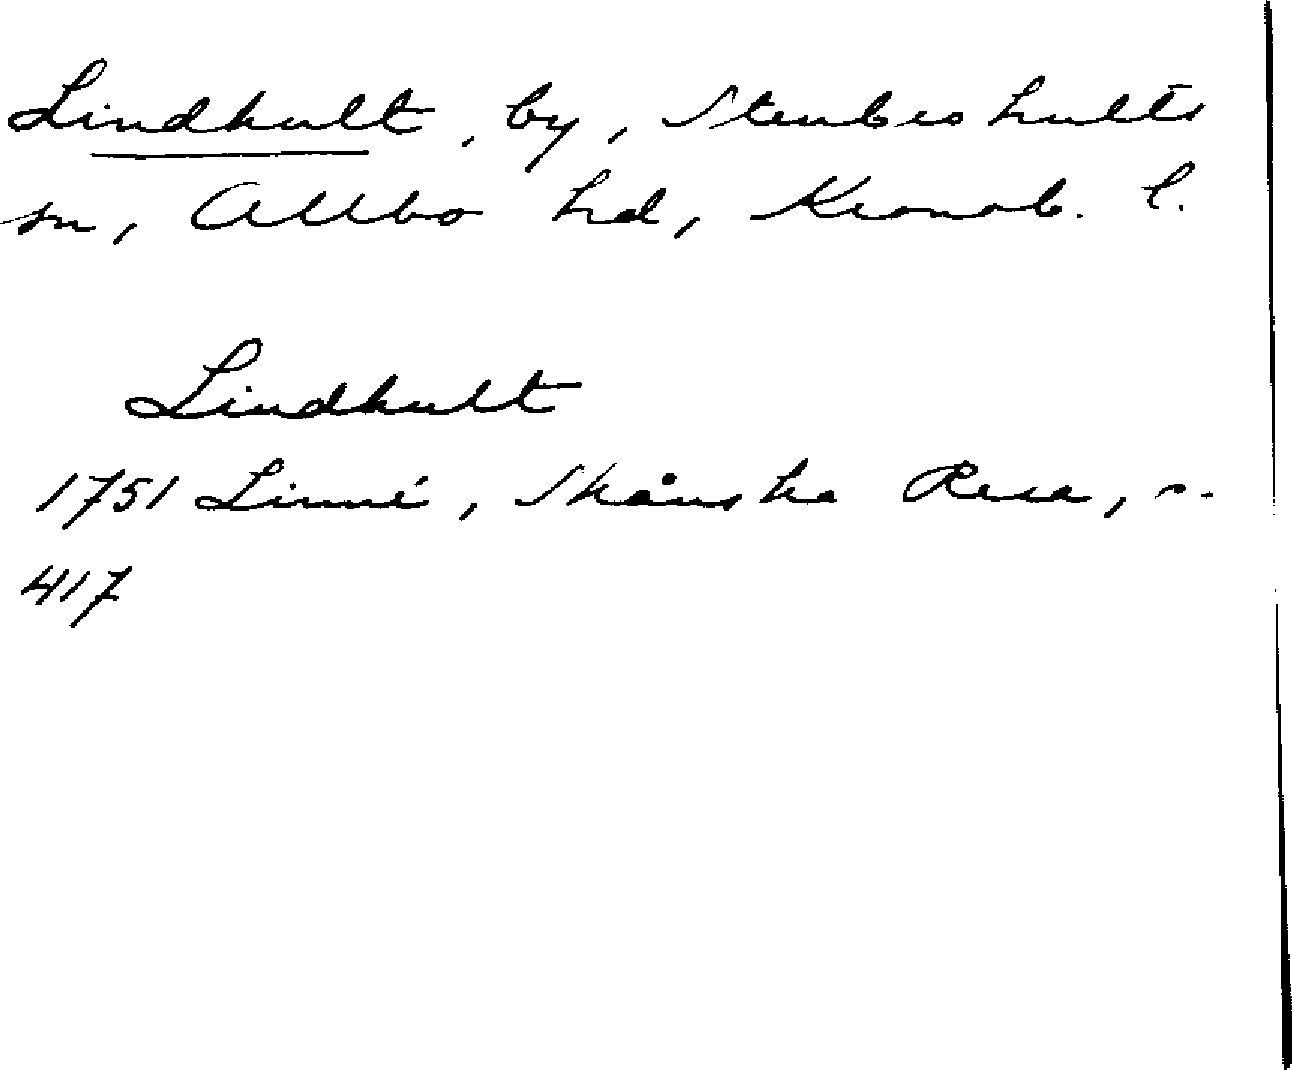 Lindhult, by, Stenbrohults
sn, Allbo hd, Kronob. l.
Lindhult
1751 Linné, Skånska Resa, s.
417